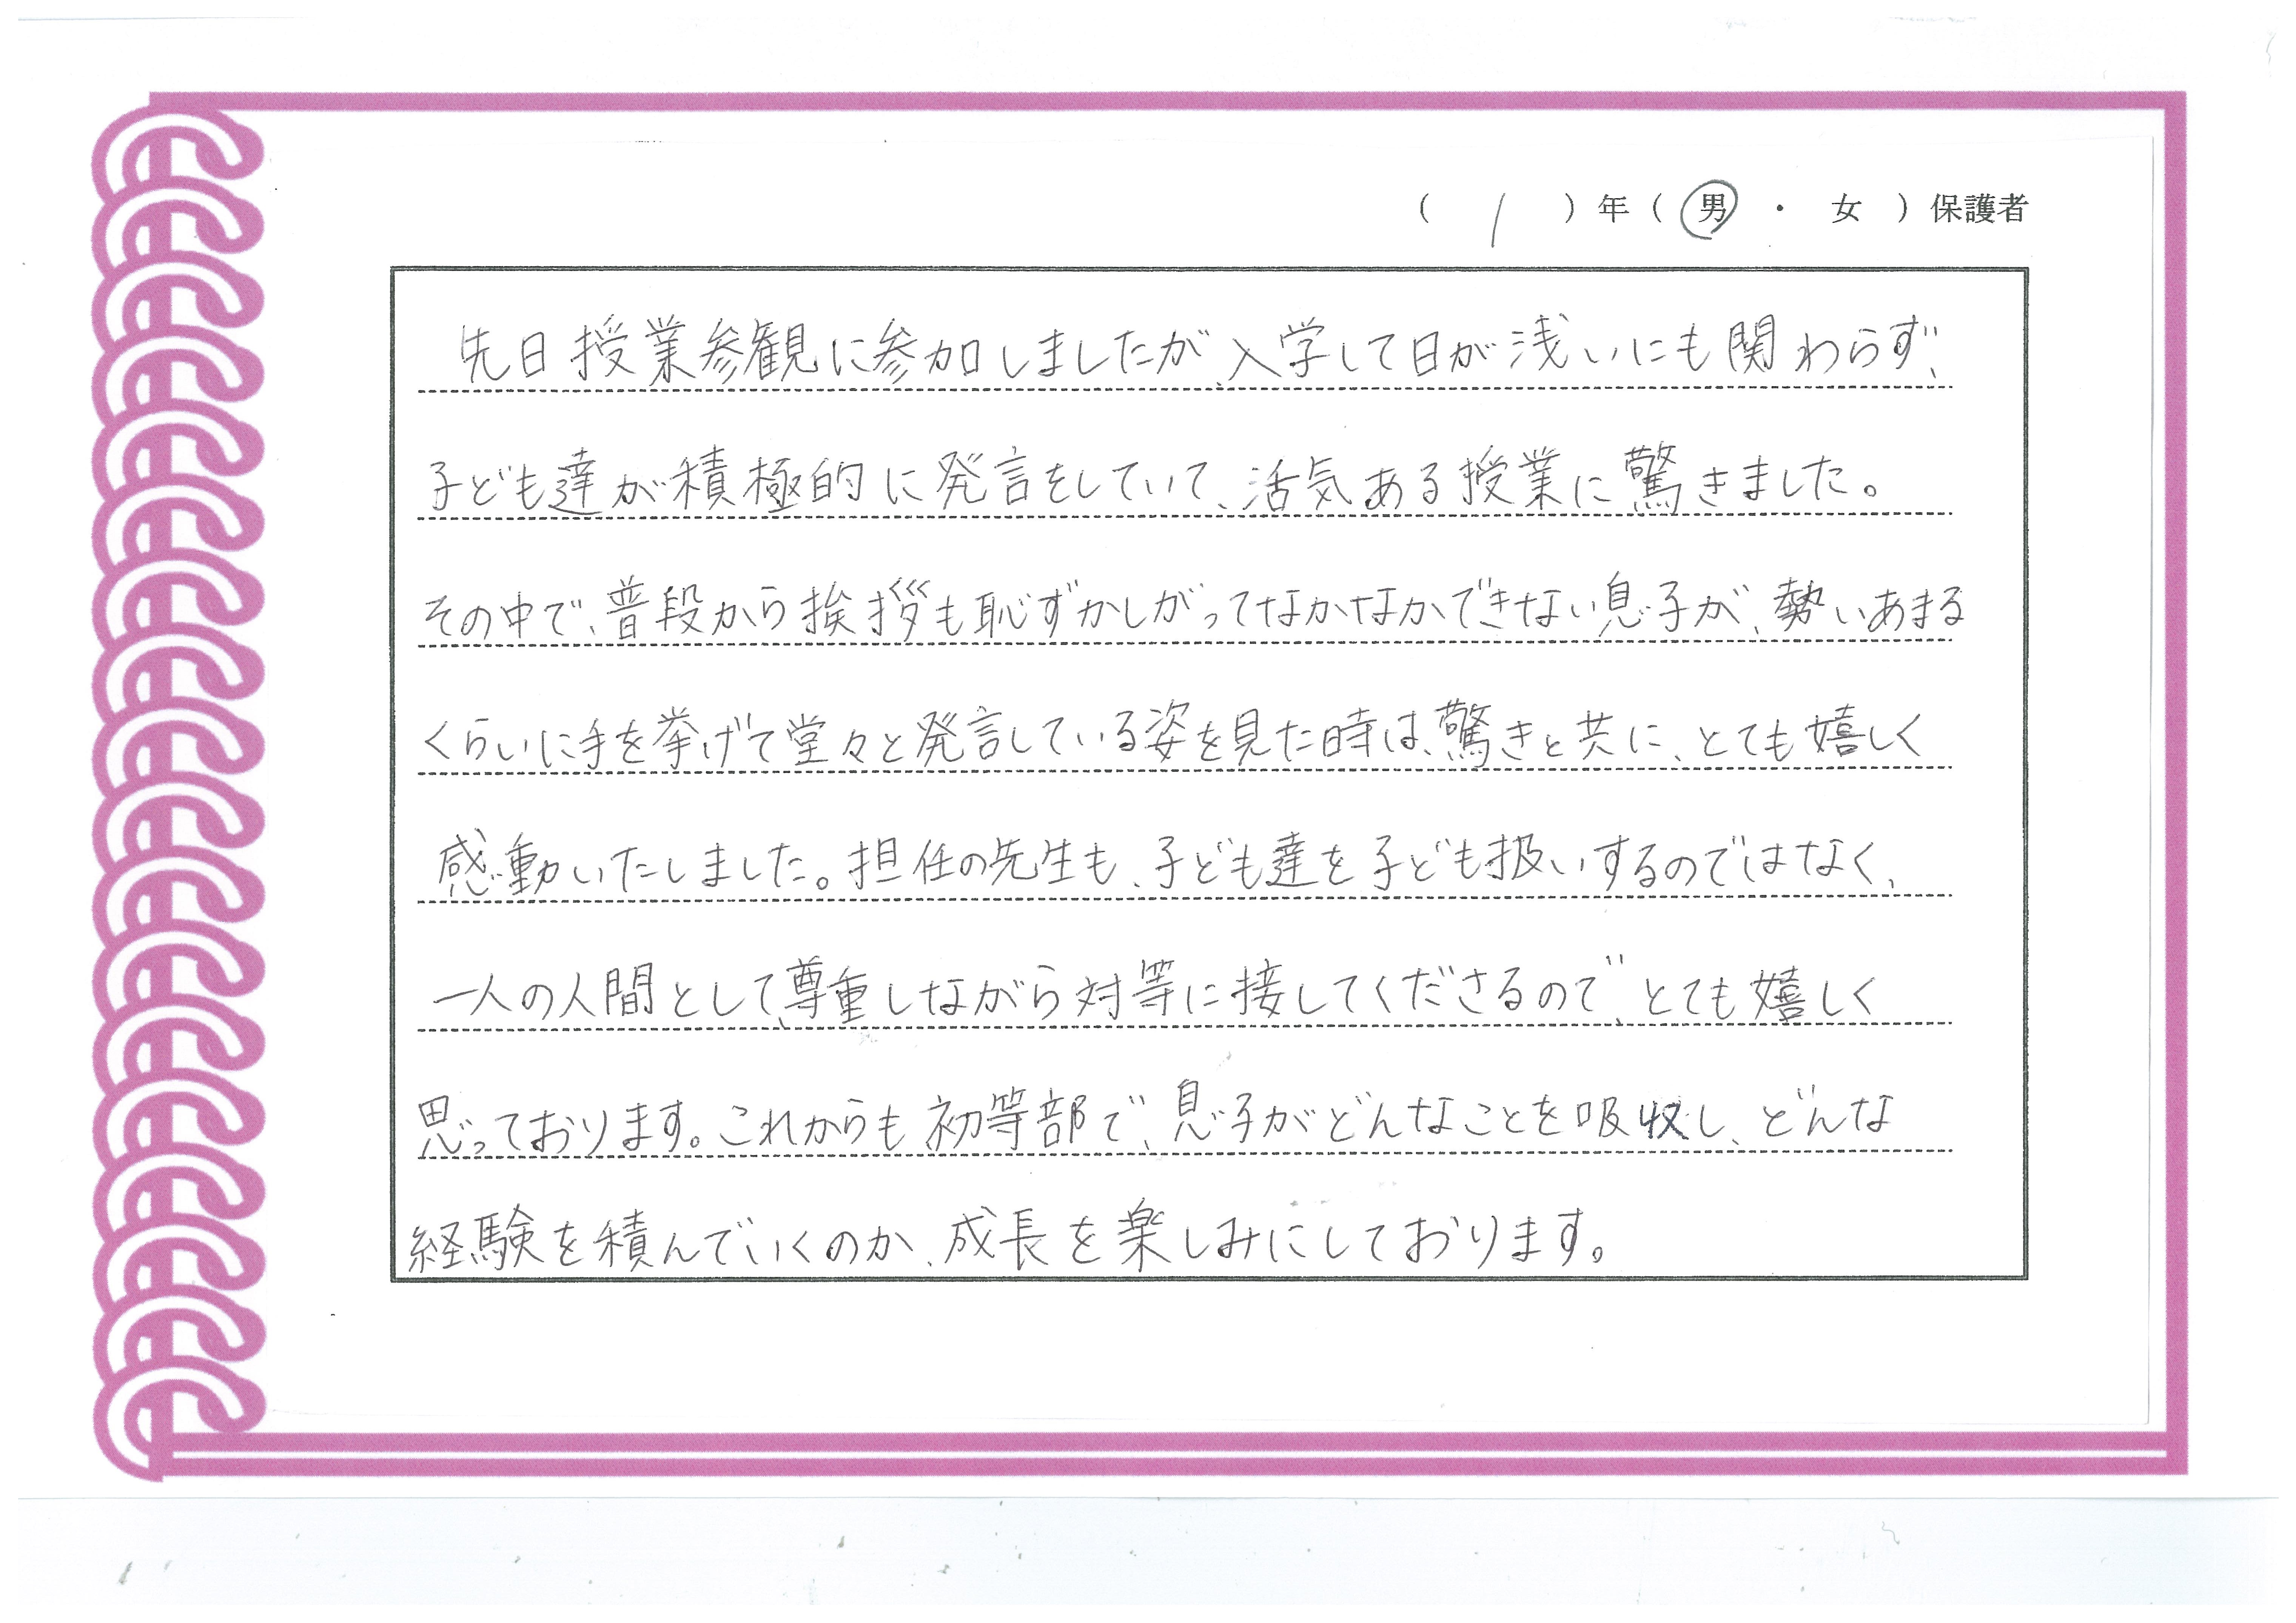 ( 1 ) 年 ( 男 ・ 女 ) 保護者
先日授業参観に参加しましたが、入学して日が浅いにも関わらず、
子ども達が積極的に発言をしていて、活気ある授業に驚きました。
その中で、普段から挨拶も恥ずかしがってなかなかできない息子が、勢いあまる
くらいに手を挙げて堂々と発言している姿を見た時は、驚きと共に、とても嬉しく
感動いたしました。担任の先生も、子ども達を子ども扱いするのではなく、
一人の人間として、尊重しながら対等に接してくださるので、とても嬉しく
思っております。これからも初等部で、息子がどんなことを吸収し、どんな
経験を積んでいくのか、成長を楽しみにしております。